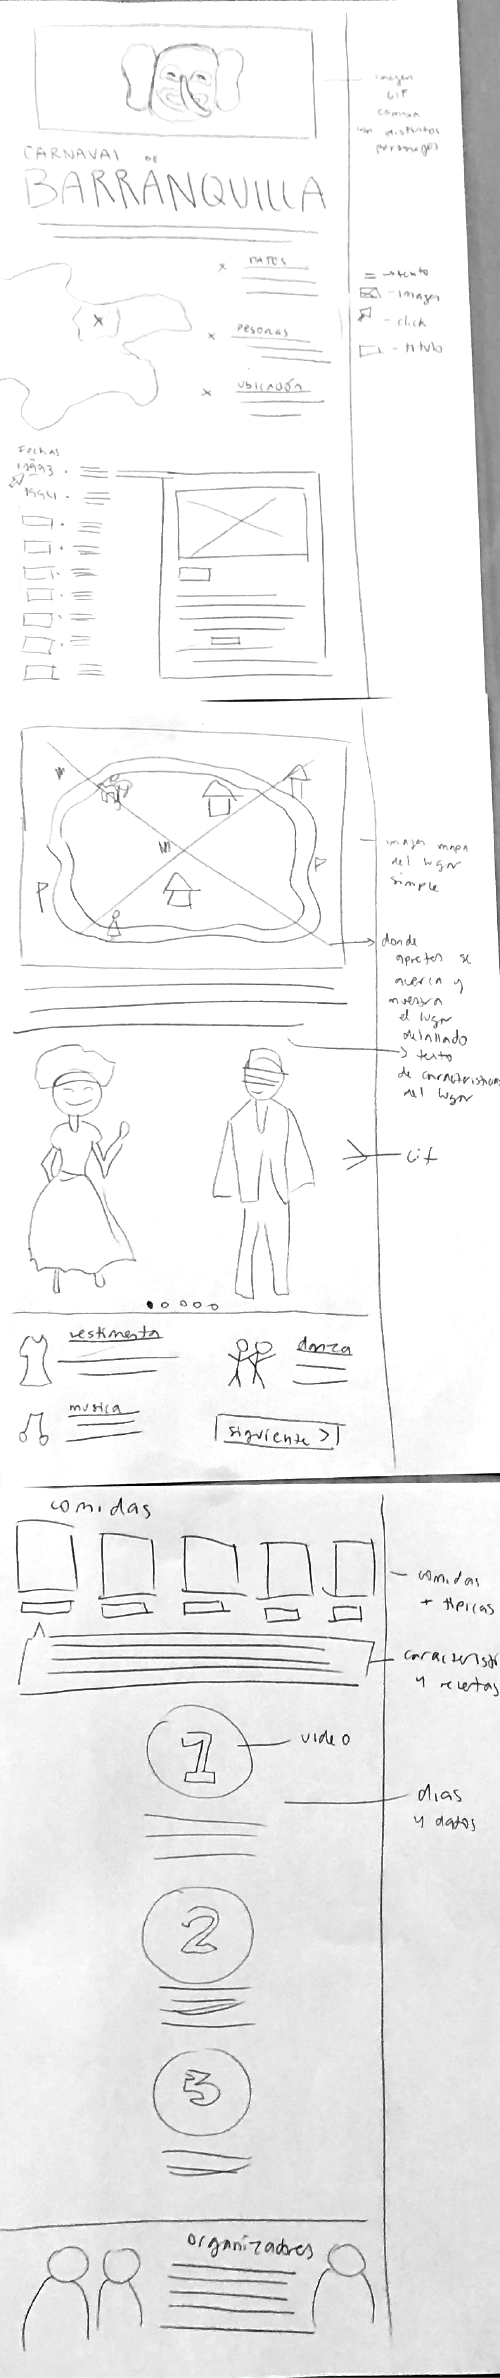 imagen
GIF
cambia
con distintos
personajes
CARNAVAL DE
BARRANQUILLA
DATOS
personas
ubicación
= - texto
- imagen
- click
- titulo
Fechas
1993
1994
imagen mapa
del lugar
simple
P
P
donde
apretes se
acerca y
muestra
el lugar
detallado
texto
de caracteristicas
del lugar
Gif
vestimenta
danza
musica
siguiente >
comidas
comidas
+ tipicas
caracterist
y recetas
1
video
dias
y datos
2
3
organizadores